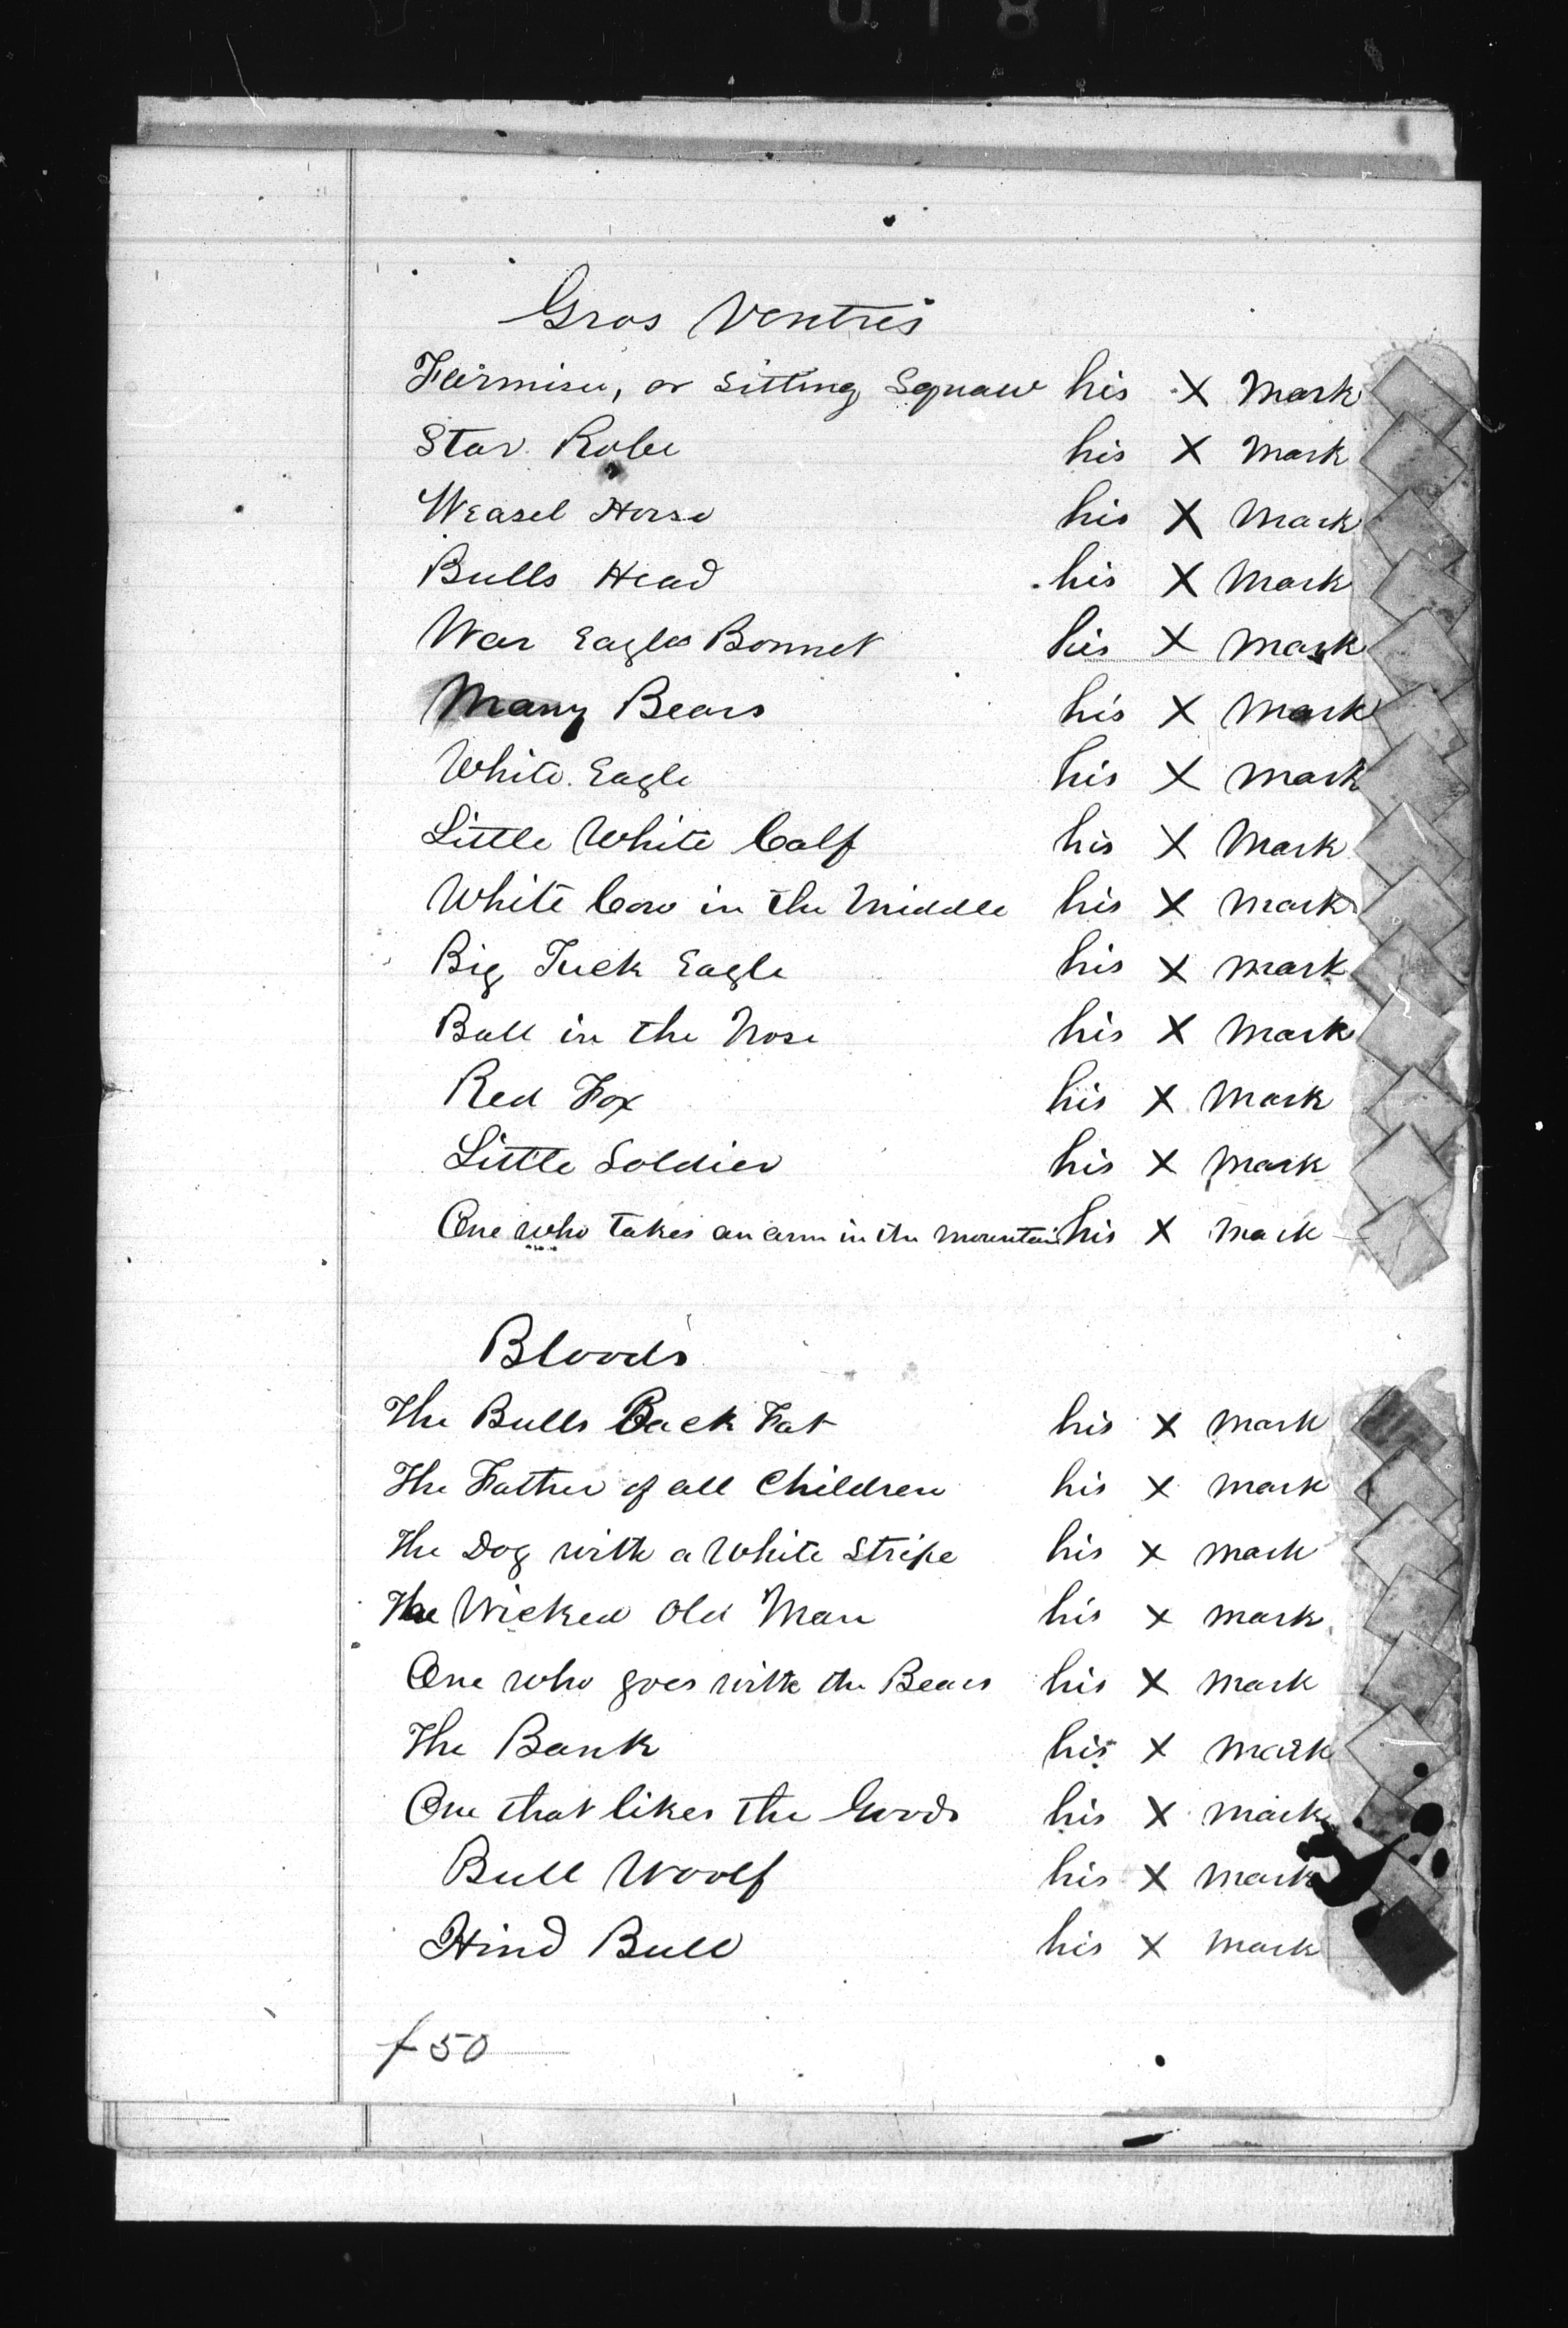 Gros Ventres
Farmisee, or Sitting Squaw his X mark
Star Robe his X mark
Weasel Horse his X mark
Bulls Head his X mark
War Eagles Bonnet his X mark
Many Bears his X mark
White Eagle his X mark
Little White Calf his X mark
White Cow in the Middle his X mark
Big Tuck Eagle his X mark
Ball in the Nose his X mark
Red Fox his X mark
Little Soldier his X mark
One who takes an arm in the mountain his X mark
Bloods
The Bulls Back Fat his X mark
The Father of all Children his X mark
The Dog with a White Stripe his X mark
The Wicked Old Man his X mark
One who goes with the Bears his X mark
The Bank his X mark
One that likes the Gods his X mark
Bull Woolf his X mark
Hind Bull his X mark
f 50